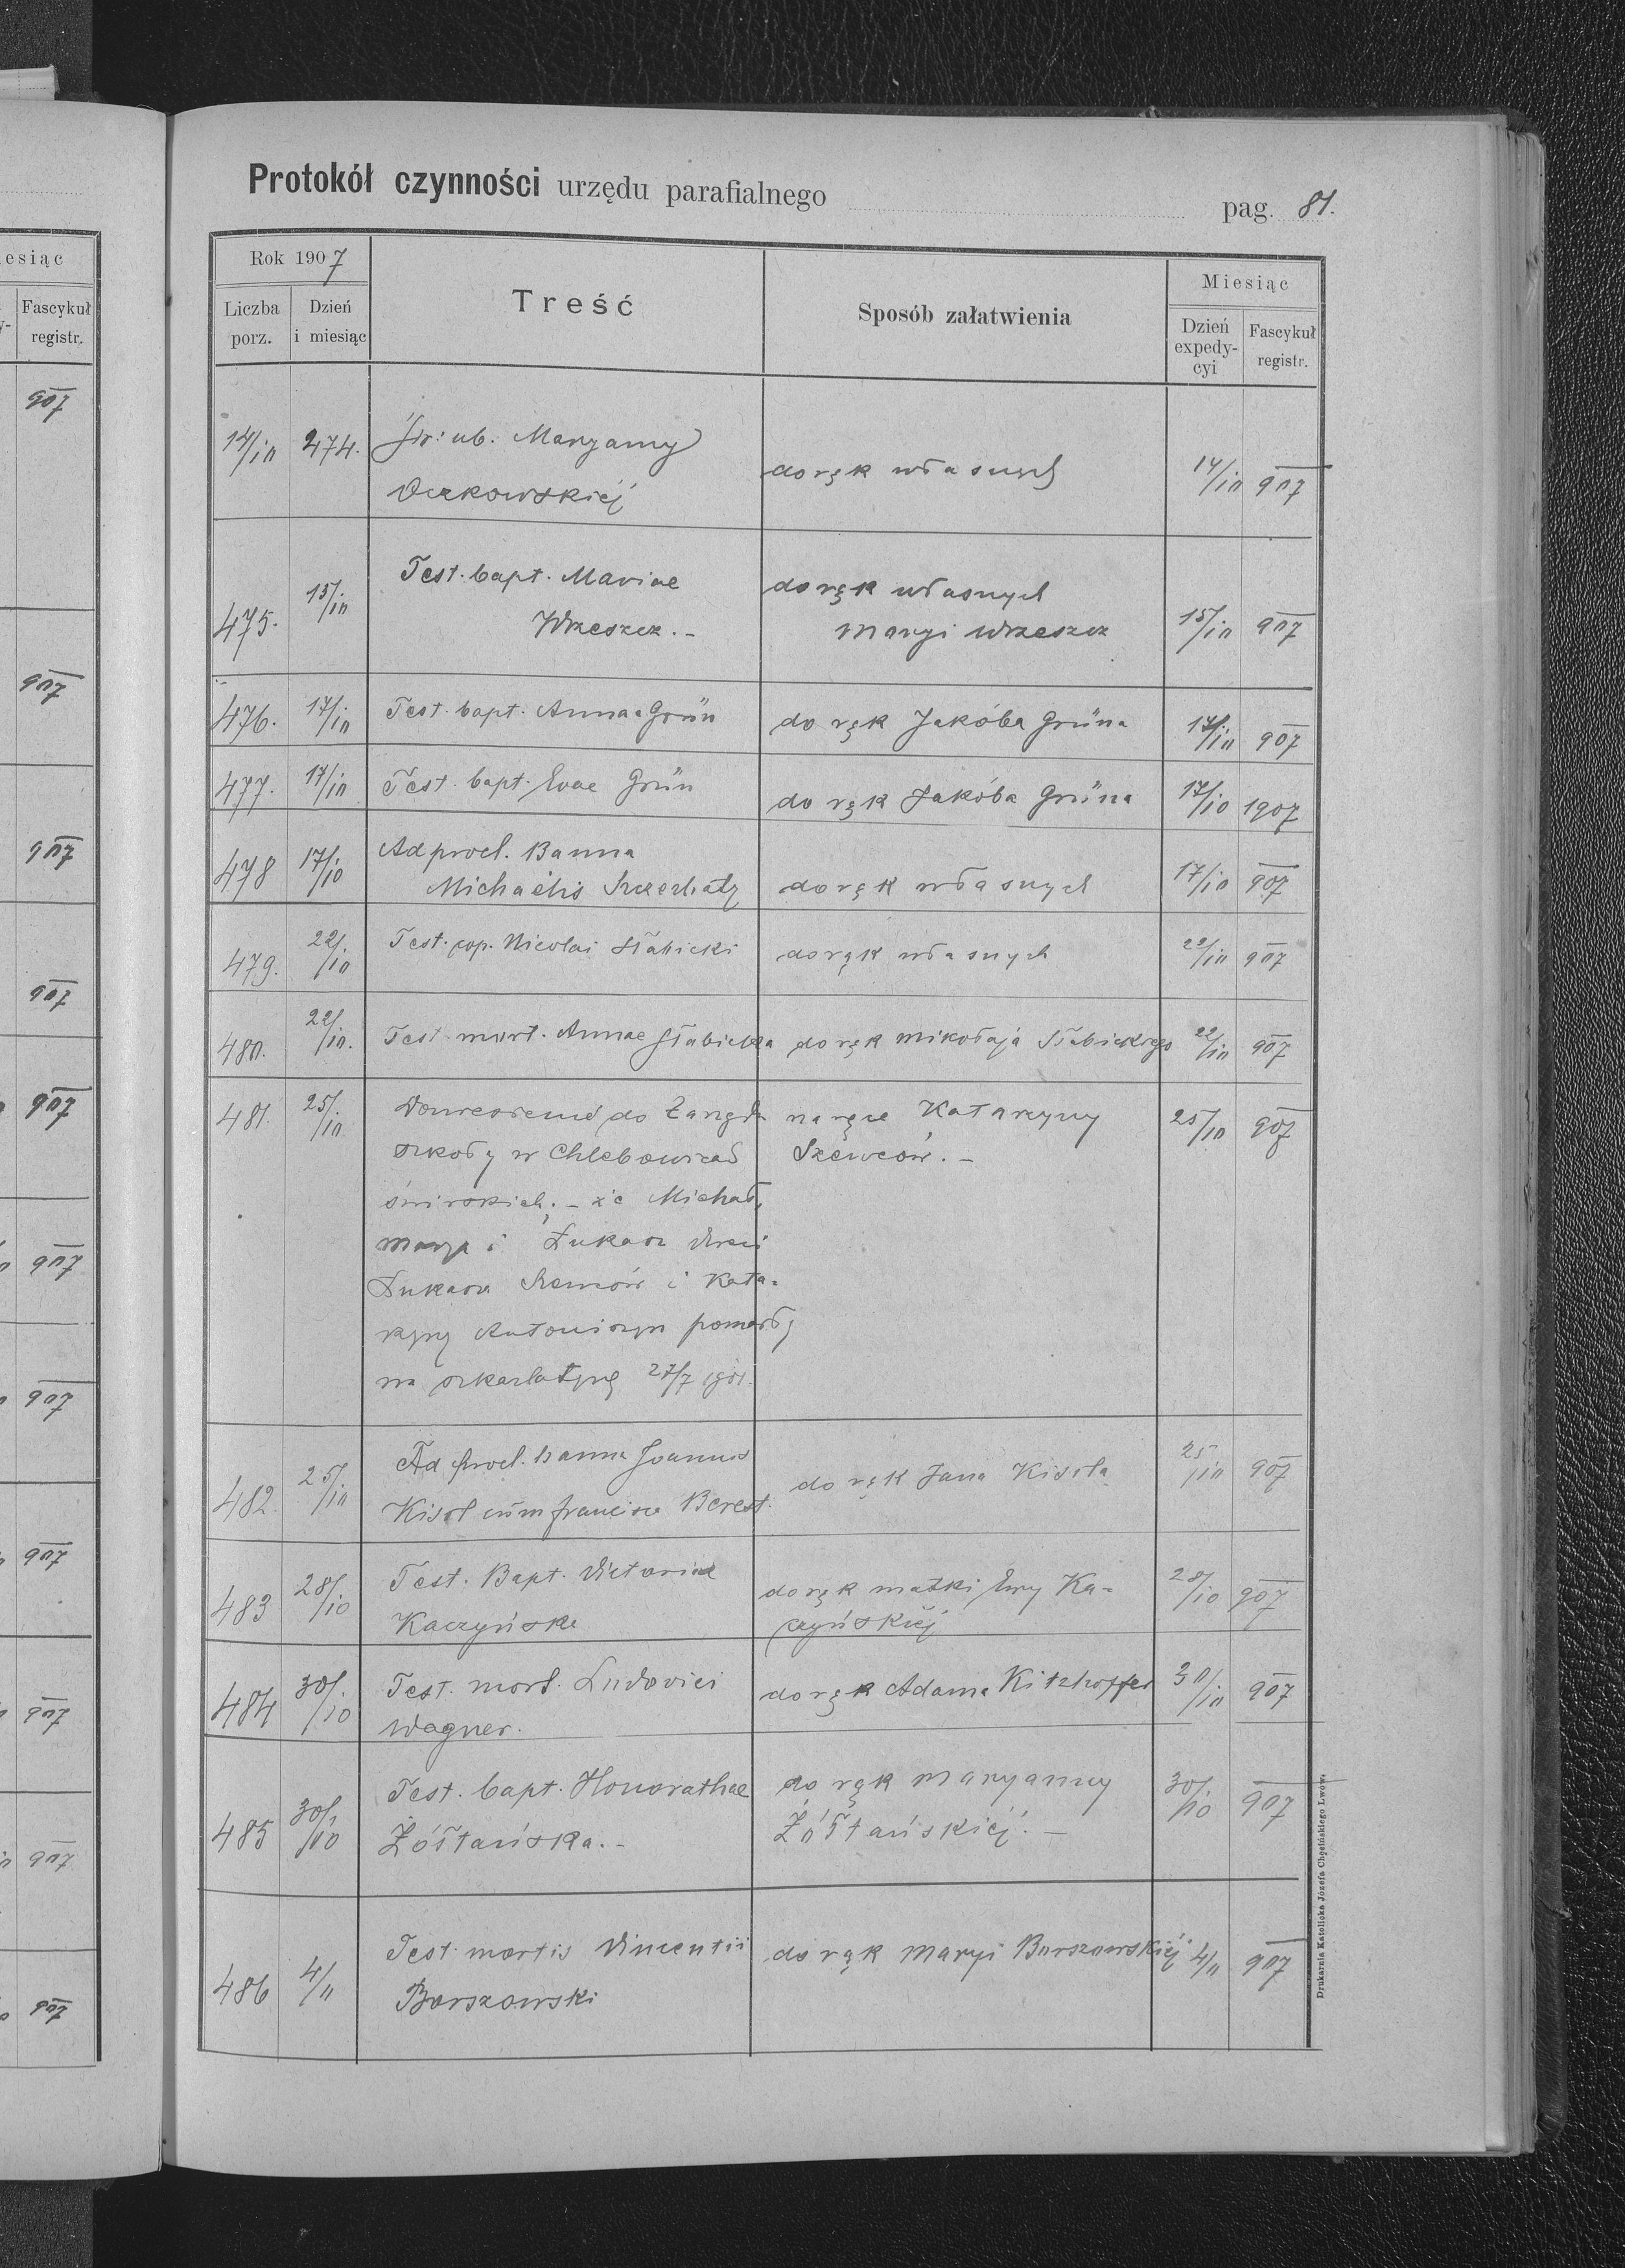 Protokół czynności urzędu parafialnego pag. 81.
Rok 1907
Liczba porz.
Dzień i miesiąc
Treść
Sposób załatwienia
Miesiąc
Dzień expedy-cyi
Fascykuł registr.
14/10 274. św: ub. Maryanny do rąk własnych 14/10 907
475. 15/10 Test. bapt. Mariae do rąk własnych 15/10 907
Wrzeszcz. - Maryi Wrzeszcz
476. 17/10 Test. bapt. Annae Grün do rąk Jakóba Grüna 17/10 907
477. 17/10 Test. bapt. Evae Grün do rąk Jakóba Grüna 17/10 1907
478 17/10 Ad procl. Banna
Michaelis do rąk własnych 17/10 907
479. 22/10 Test. cop. Nicolai Słabicki do rąk własnych 22/10 907
480. 22/10. Test. mort. Annae Słabicka do rąk Mikołaja Słabickiego 22/10 907
481. 25/10 Doniesienie do Zarządu na ręce Katarzyny 25/10 907
szkoły w Chlebowicach Szewców. -
świrskich; - że Michał,
Marya i Łukasz dzieci
Łukasza Szewców i Kata-
rzyny Antoniszyn pomarły
na szkarlatynę 27/7 901.
482. 25/10 Ad procl. banna Joannis do rąk Jana Kisiła 25/10 907
Kisił cum Francisca Berest.
483 28/10 Test. Bapt. Victoriae do rąk matki Ewy Ka- 28/10 907
Kaczyńska czyńskiej
484 30/10 Test. mort. Ludovici do rąk Adama Kitzhoffer 30/10 907
Wagner.
485 30/10 Test. bapt. Honorathae do rąk Maryanny 30/10 907
Żółtańska. - Żółtańskiej. -
486 4/11 Test. mortis Vincentii do rąk Maryi Borszowskiej 4/11 907
Borszowski
Drukarnia Katolicka Józefa Chęcińskiego Lwów.
esiąc
Fascykuł
registr.
907
907
907
907
907
907
907
907
907
907
907